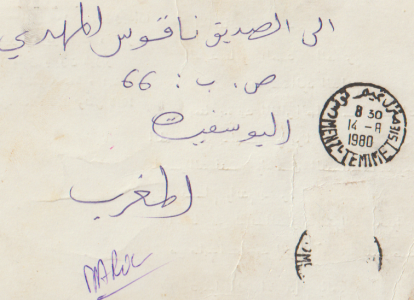 الى الصديق ناقوس المهدي
ص. ب : 66
اليوسفية
المغرب
MAROC
منزل تميم تونس
8 30
14 - 8
1980
MENZEL TEMIME TSIE